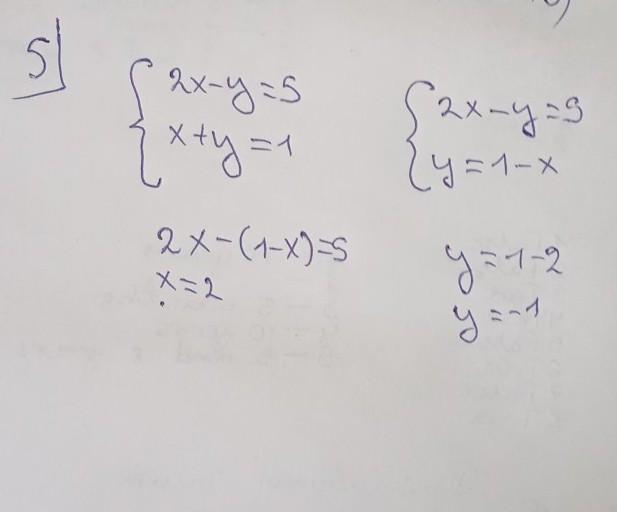 5
2x-y=5
x+y=1
2x-y=5
y=1-x
2x-(1-x)=5
x=2
y=1-2
y=-1